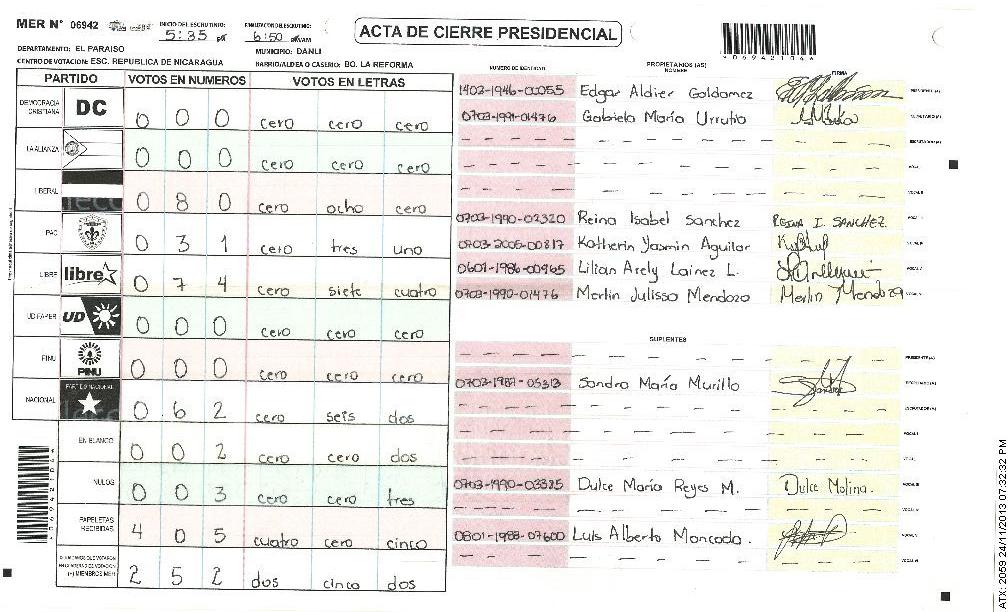 MER N° 06942
INICIO DEL ESCRUTINIO: 5:35 PM
FINALIZACION DEL ESCRUTINIO: 6:50
ACTA DE CIERRE PRESIDENCIAL
DEPARTAMENTO: EL PARAISO
MUNICIPIO: DANLI
CENTRO DE VOTACION: ESC. REPUBLICA DE NICARAGUA
BARRIO/ALDEA O CASERIO: BO. LA REFORMA
PARTIDO VOTOS EN NUMEROS VOTOS EN LETRAS
DEMOCRACIA CRISTIANA DC 0 0 0 cero cero cero
LA ALIANZA 0 0 0 cero cero cero
LIBERAL 0 8 0 cero ocho cero
PAC 0 3 1 cero tres uno
LIBRE libre 0 7 4 cero siete cuatro
UD FAPER UD 0 0 0 cero cero cero
PINU PINU 0 0 0 cero cero cero
NACIONAL PARTIDO NACIONAL 0 6 2 cero seis dos
EN BLANCO 0 0 2 cero cero dos
NULOS 0 0 3 cero cero tres
PAPELETAS RECIBIDAS 4 0 5 cuatro cero cinco
(+) MIEMBROS MER 2 5 2 dos cinco dos
NUMERO DE IDENTIDAD PROPIETARIOS (AS) NOMBRE FIRMA
1402-1946-00055 Edgar Aldier Goldamez PRESIDENTE (A)
0703-1991-01476 Gabriela María Urrutia SECRETARIO (A)
ESCRUTADOR (A)
VOCAL I
VOCAL II
0703-1990-02320 Reina Isabel Sanchez REINA I. SANCHEZ
0703-2006-00817 Katherin Yasmin Aguilar
0601-1986-00965 Lilian Arely Lainez L.
0703-1990-01476 Merlin Julissa Mendoza Merlin Mendoza
SUPLENTES
PRESIDENTE (A)
0703-1987-05313 Sandra María Murillo SECRETARIO (A)
ESCRUTADOR (A)
VOCAL I
0703-1990-03385 Dulce María Reyes M. Dulce Molina.
0801-1988-07600 Luis Alberto Moncada.
ATX: 2059 24/11/2013 07:32:32 PM